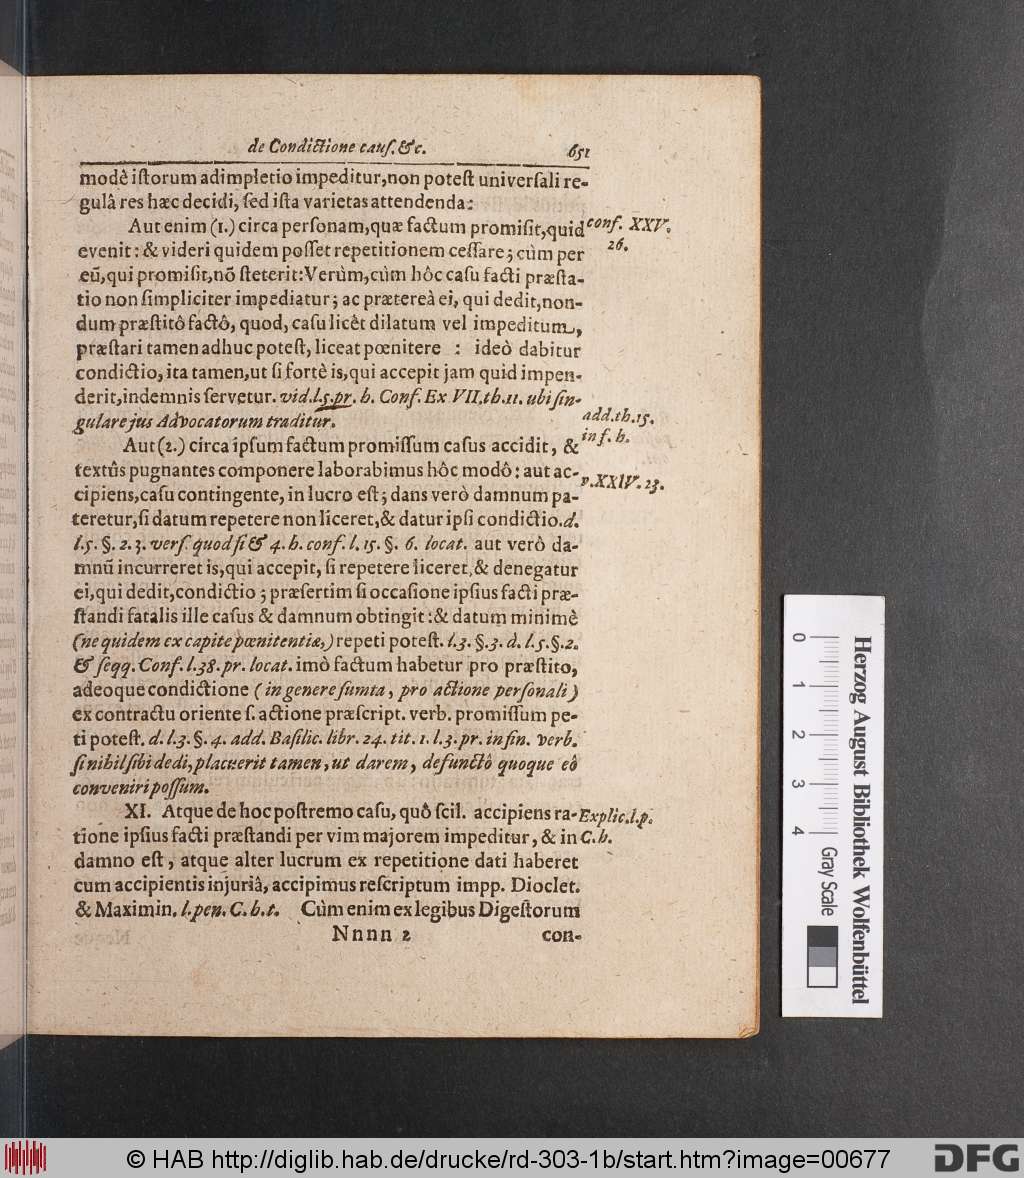 de Condictione cauſ. &c. 651
modè iſtorum adimpletio impeditur, non poteſt univerſali re-
gulâ res hæc decidi, ſed iſta varietas attendenda:
Aut enim (1.) circa perſonam, quæ factum promiſit, quid
conf. XXV.
26.
evenit: & videri quidem poſſet repetitionem ceſſare; cùm per
eũ, qui promiſit, nõ ſteterit: Verùm, cùm hôc caſu facti præſta-
tio non ſimpliciter impediatur; ac prætereà ei, qui dedit, non-
dum præſtitô factô, quod, caſu licèt dilatum vel impeditum,
præſtari tamen adhuc poteſt, liceat pœnitere : ideò dabitur
condictio, ita tamen, ut ſi fortè is, qui accepit jam quid impen-
derit, indemnis ſervetur. vid. l. 5. pr. h. Conf. Ex VII. th. 11. ubi ſin-
gulare jus Advocatorum traditur.
add. th. 15.
inf. h.
Aut (2.) circa ipſum factum promiſſum caſus accidit, &
textûs pugnantes componere laborabimus hôc modô: aut ac-
p. XXIV. 23.
cipiens, caſu contingente, in lucro eſt; dans verò damnum pa-
teretur, ſi datum repetere non liceret, & datur ipſi condictio. d.
l. 5. §. 2. 3. verſ. quod ſi & 4. h. conf. l. 15. §. 6. locat. aut verò da-
mnũ incurreret is, qui accepit, ſi repetere liceret, & denegatur
ei, qui dedit, condictio; præſertim ſi occaſione ipſius facti præ-
ſtandi fatalis ille caſus & damnum obtingit: & datum minimè
(ne quidem ex capite pœnitentiæ,) repeti poteſt. l. 3. §. 3. d. l. 5. §. 2.
& ſeqq. Conf. l. 38. pr. locat. imò factum habetur pro præſtito,
adeoque condictione (in genere ſumta, pro actione perſonali)
ex contractu oriente ſ. actione præſcript. verb. promiſſum pe-
ti poteſt. d. l. 3. §. 4. add. Baſilic. libr. 24. tit. 1. l. 3. pr. in fin. verb.
ſi nihil ſibi dedi, placuerit tamen, ut darem, defunctô quoque eô
conveniri poſſum.
XI. Atque de hoc poſtremo caſu, quô ſcil. accipiens ra-
Explic. l. p.
C. h.
tione ipſius facti præſtandi per vim majorem impeditur, & in
damno eſt, atque alter lucrum ex repetitione dati haberet
cum accipientis injuriâ, accipimus reſcriptum impp. Dioclet.
& Maximin. l. pen. C. h. t. Cùm enim ex legibus Digeſtorum
Nnnn 2 con-
0 1 2 3 4
Gray Scale
Herzog August Bibliothek Wolfenbüttel
© HAB http://diglib.hab.de/drucke/rd-303-1b/start.htm?image=00677
DFG